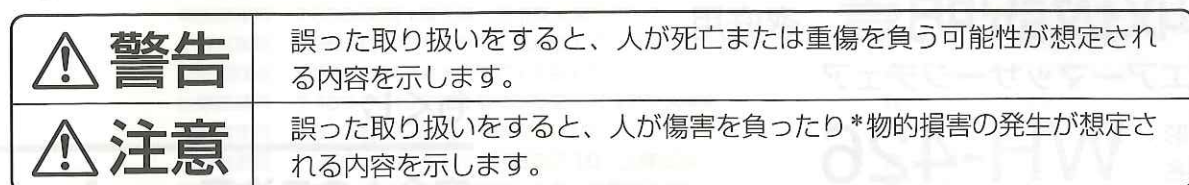 警告
誤った取り扱いをすると、人が死亡または重傷を負う可能性が想定され
る内容を示します。
注意
誤った取り扱いをすると、人が傷害を負ったり*物的損害の発生が想定さ
れる内容を示します。